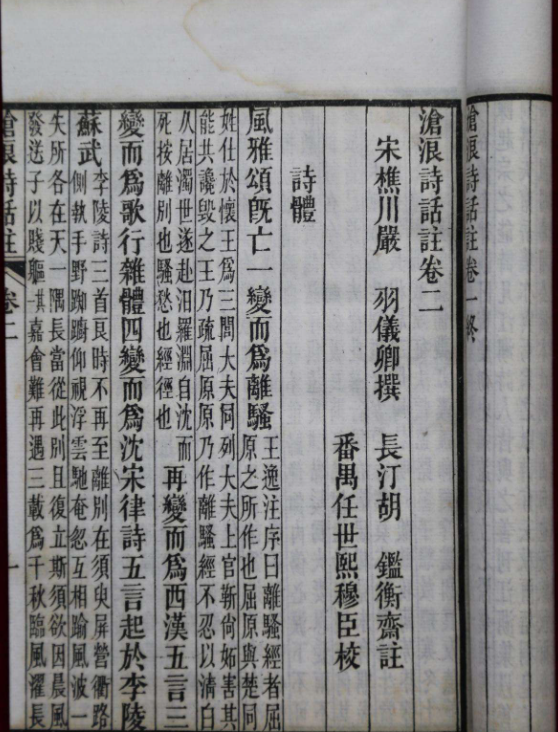 滄浪詩話註卷一終
滄浪詩話註卷二
宋樵川嚴　羽儀卿撰　長汀胡　鑑衡齋註
番禺任世熙穆臣校
詩體
風雅頌旣亡一變而爲離騷
王逸注序曰離騷經者屈
原之所作也屈原與楚同
姓仕於懷王爲三閭大夫同列大夫上官靳尙妬害其
能共譖毀之王乃疏屈原原乃作離騷經不忍以清白
久居濁世遂赴汨羅淵自沈而
死按離別也騷愁也經徑也
再變而爲西漢五言三
變而爲歌行雜體四變而爲沈宋律詩五言起於李陵
蘇武
李陵詩三首良時不再至離別在須臾屏營衢路
側執手野踟躕仰視浮雲馳奄忽互相踰風波一
失所各在天一隅長當從此別且復立斯須欲因晨風
發送子以賤軀其嘉會難再遇三載爲千秋臨風濯長
滄浪詩話註　卷二　一